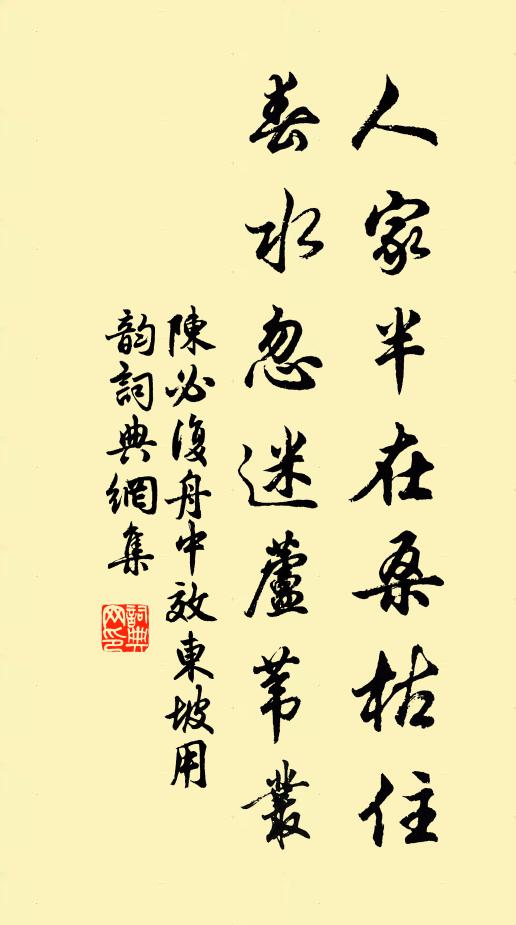 人家半在桑枯住
春水忽迷蘆葦叢
陳必復舟中效東坡用
韵詞典網集
詞典網印